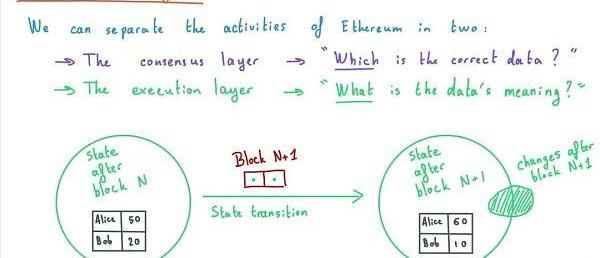 We can separate the activities of Ethereum in two:
→ The consensus layer → "Which is the correct data?"
→ The execution layer → "What is the data's meaning?"
State
after
block N
Alice 50
Bob 20
Block N+1
State transition
State
after
block N+1
Alice 60
Bob 10
changes after
block N+1